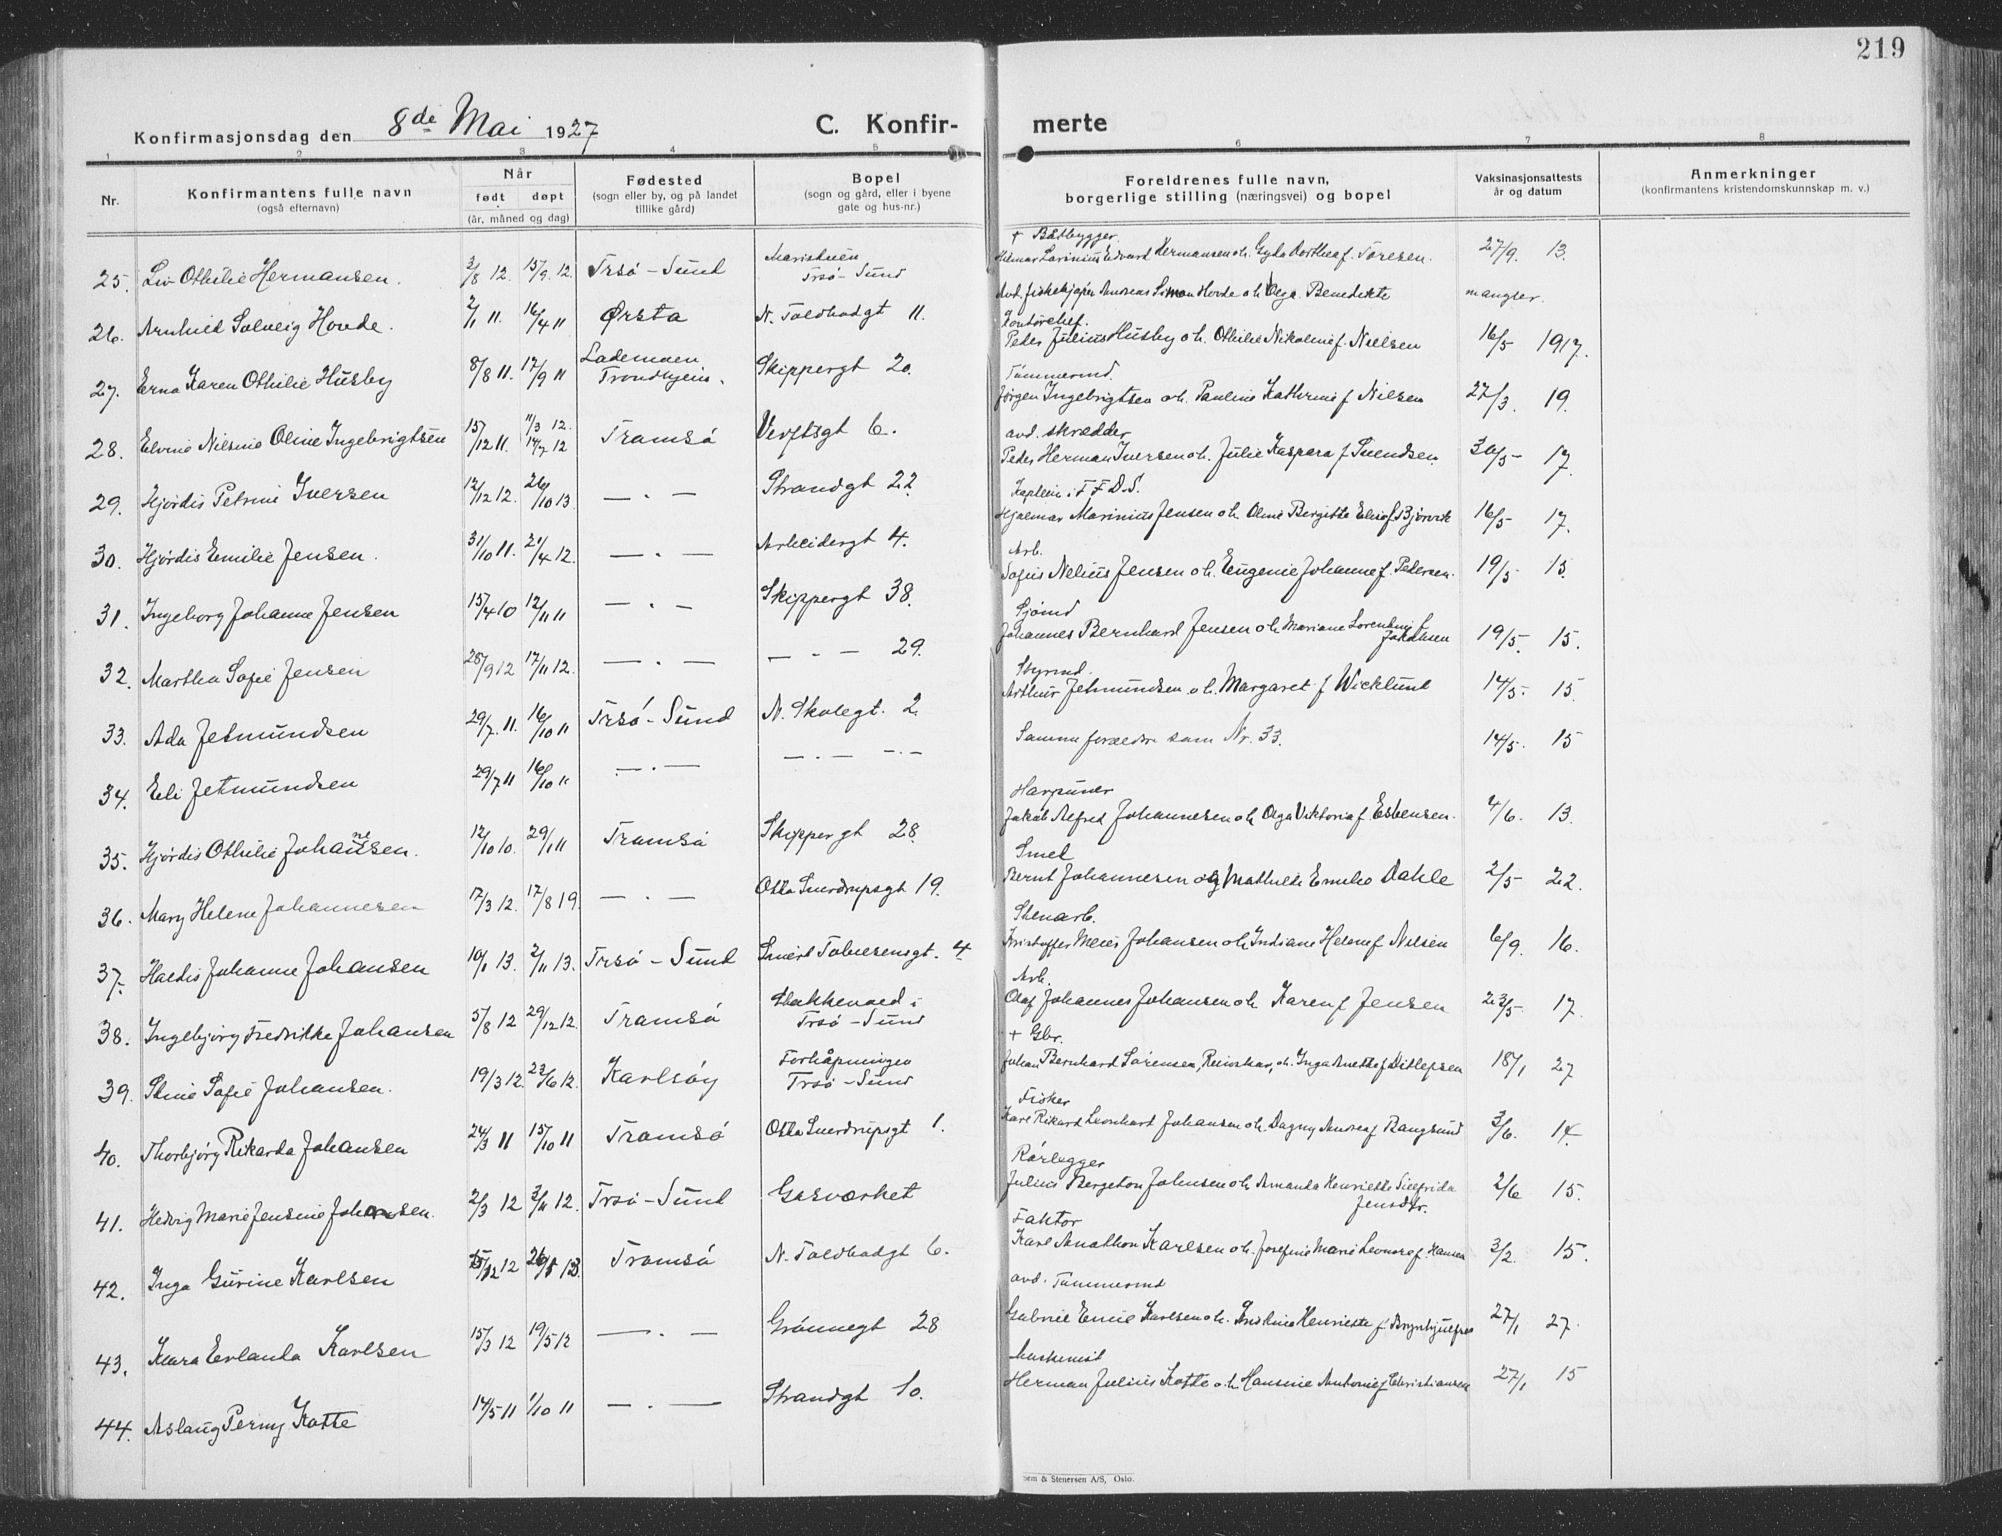 219
Konfirmasjonsdag den 8de Mai 1927 C. Konfir- merte
1 2 3 4 5 6 7 8
Nr. Konfirmantens fulle navn (også efternavn) Når født døpt (år, måned og dag) Fødested (sogn eller by, og på landet tillike gård) Bopel (sogn og gård, eller i byene gate og hus-nr.) Foreldrenes fulle navn, borgerlige stilling (næringsvei) og bopel Vaksinasjonsattests år og datum Anmerkninger (konfirmantens kristendomskunnskap m. v.)
+ Båtbygger
25. Liv Othilie Hermansen. 3/8 12. 15/9 12. Trsö-Sund Trsö-Sund Hilmar Larinius Edvard Hermansen o h. Gyda Dorthea f. Toresen. 27/9. 13.
26. Arnhild Solveig Hovde. 2/1 11. 16/4 11 Ørsta N. Toldbodgt 11. Avd. fiskekjøper Andreas Simon Hovde o h Olga Benedikte mangler.
Kontorchef.
27. Erna Karen Othilie Husby 8/8 11. 17/9 11 Lademoen Trondhjem. Skippergt 20. Peder Julius Husby o h. Othilie Nikoline f. Nielsen 16/5 1917.
Tömmermd.
28. Elvine Nilsine Oline Ingebrigtsen 15/12 11. 11/3 12. 14/7 12 Tromsö Verftsgt 6. Jørgen Ingebrigtsen o h. Pauline Kathrine f Nielsen 27/3. 19.
avd. skrædder
29. Hjördis Petrine Iversen 12/12 12. 26/10 13. — . — Strandgt 22. Peder Herman Iversen o h. Julie Kaspara f Svendsen. 30/5 17.
Kaptein i F F D.S.
30. Hjördis Emilie Jensen. 31/10 11. 21/4 12. — . — Arbeidergt 4. Hjalmar Marinius Jensen o h Oline Bergitte Elise f Bjørvik 16/5 17.
Arb.
31. Ingeborg Johanne Jensen 15/4 10 12/11 11 — . — Skippergt 38. Sofus Nelius Jensen o h. Eugenie Johanne f Pedersen. 19/5 15.
Sjömd
32. Martha Sofie Jensen 28/9 12 17/11 12. — . — — . — 29. Johannes Bernhard Jensen o h Mariane f Jakobsen 19/5. 15.
Styrmd
33. Ada Jetmundsen 29/7. 11. 16/10 11 Trsö-Sund N. Skolegt. 2. Arthur Jetmundsen o h. Margaret f Wicklund 14/5. 15
34. Eli Jetmundsen 29/7 11 16/10 11 — . — — . — — . — Samme foreldre som Nr. 33. 14/5. 15
Harpuner
35. Hjördis Othilie Johannesen. 12/10 10. 29/1 11 Tromsö Skippergt 28. Jakob Alfred Johannesen o h Olga Viktoria f Esbensen. 4/6. 13.
Smed
36. Mary Helene Johannesen 17/3 12. 17/8 19. — . — Otto Sverdrupsgt 19. Bernt Johannesen og Mathilde Emilie Dahle 2/5 22.
Stenarb.
37. Haldis Johanne Johansen 10/1 13. 2/11 13. Trsö-Sund 4 Kristoffer Meier Johansen o h Indiane Helene f Nilsen 6/9. 16.
Arb.
38. Ingebjörg Fredrikke Johansen 5/8 12 29/12 12. Tromsö Stakkevold i Trsö-Sund Olaf Johannes Johansen o h. Karen f Jensen 23/5 17.
+ Gbr.
39. Stine Sofie Johansen. 19/3 12. 23/6 12. Karlsöy Forhåpningen Trsö-Sund Johan Bernhard Sørensen, o h. Inga Anette f Ditlefsen 18/1 27
Fisker
40. Thorbjörg Rikarda Johansen 24/3 11 15/10 11 Tromsö Otto Sverdrupsgt 1. Kare Rikard Leonhard Johansen o h. Dagny Andrea f Bangsund 3/6. 14.
Rörlegger
41. Hedvig Marie Jensine Johnsen. 2/3 12 3/11 12. Trsö-Sund Gasværket Julius Bergeton Johnsen o h Amanda Henriette Sigfrida Jensdtr. 2/6 15.
Faktor
42. Inga Gurine Karlsen 15/12 12 Tromsö N. Toldbodgt 6. Karl Anathon Karlsen o h. Josefine Marie Leonore f. Hansen 3/2. 15.
avd. Tömmermd
43. Klara Erlanda Karlsen 15/3 12 19/5 12 — . — Grönnegt 28 Gabriel Emil Karlsen o h. Kristine Henriette f Brynhjulfsen 27/1 27.
Maskinist
44. Aslaug Perny Kotte 14/5 11 1/10 11 — . — Strandgt 10. Herman Julius Kotte o h Hansine Antonie f Christiansen 27/1 15
Stenersen A/S, Oslo.